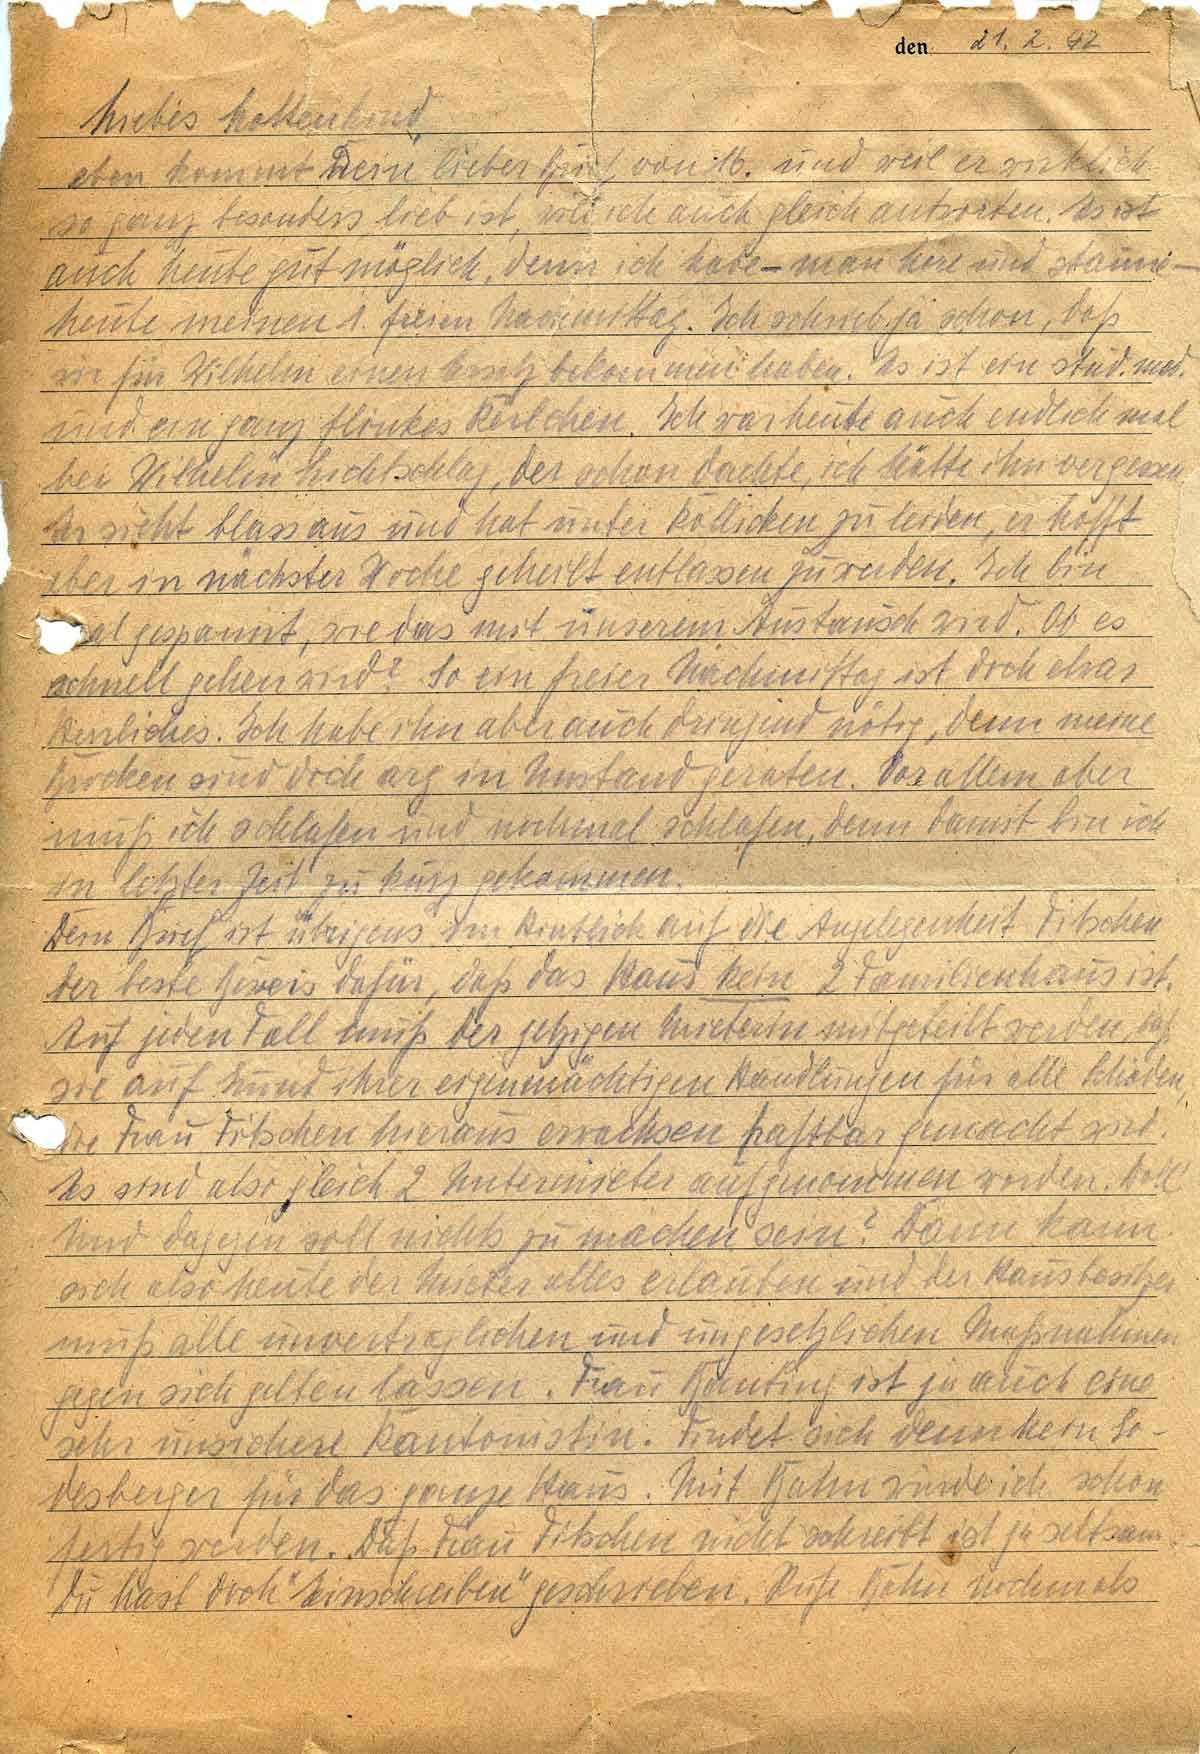 den 21. 2. 42
Liebes
eben kommt Dein lieber Brief von 16. und weil er wirklich
so ganz besonders lieb ist, will ich auch gleich antworten. Es ist
auch heute gut möglich, denn ich habe – man höre und staune –
heute meinen 1. freien Nachmittag. Ich schrieb ja schon, daß
wir für Wilhelm einen Ersatz bekommen haben. Es ist ein stud. med.
und ein ganz flinkes Kerlchen. Ich war heute auch endlich mal
bei Wilhelm Lichtschlag, der schon dachte, ich hätte ihn vergessen
Er sieht blass aus und hat unter Kolliken zu leiden, er hofft
aber in nächster Woche geheilt entlassen zu werden. Ich bin
mal gespannt, wie das mit unserem Austausch wird. Ob es
schnell gehen wird? So ein freier Nachmittag ist doch etwas
Herrliches. Ich habe ihn aber auch dringend nötig, denn meine
Brocken sind doch arg in Unstand geraten. Vor allem aber
muß ich schlafen und nochmal schlafen, denn damit bin ich
in letzter Zeit zu kurz gekommen.
Dein Brief ist übrigens im Hinblick auf die Angelegenheit Fitschen
der beste Beweis dafür, daß das Haus kein 2 Familienhaus ist.
Auf jeden Fall muß der jetzigen Mieterin mitgeteilt werden, daß
sie auf Grund ihrer eigenmächtigen Handlungen für alle Schäden,
die Frau Fitschen hieraus erwachsen haftbar gemacht wird.
Es sind also gleich 2 Untermieter aufgenommen worden. Toll!
Und dagegen soll nichts zu machen sein? Dann kann
sich also heute der Mieter alles erlauben und der Hausbesitzer
muß alle unvertraglichen und ungesetzlichen Maßnahmen
gegen sich gelten lassen. Frau ist ja auch eine
sehr unsichere Kantonistin. Findet sich denn kein Go-
desberger für das ganze Haus. Mit Hahn würde ich schon
fertig werden. Daß Frau Fitschen nicht schreibt ist ja seltsam
Du hast doch "Einschreiben" geschrieben. Rufe Hahn nochmals